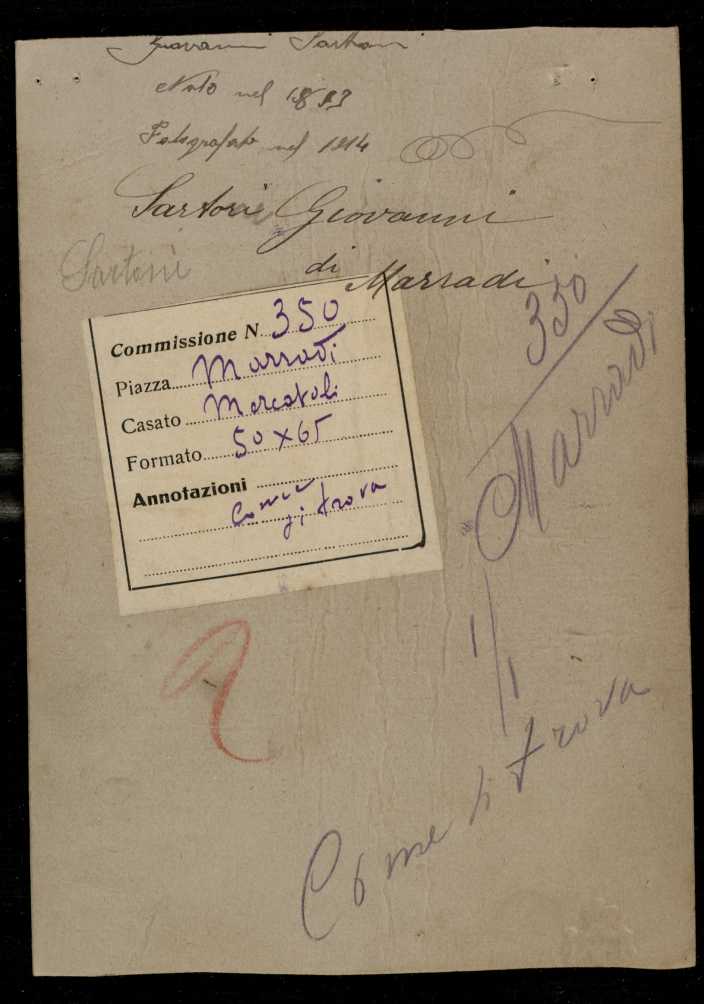 Giovanni Sartoni
Nato nel 1893
Fotografato nel 1914
Sartori Giovanni
di Marradi
Sartoni
Commissione N. 350
Piazza Marradi
Casato Mercatali
Formato 50x65
Annotazioni
Come
si trova
350
Marradi
1/1
Come si trova